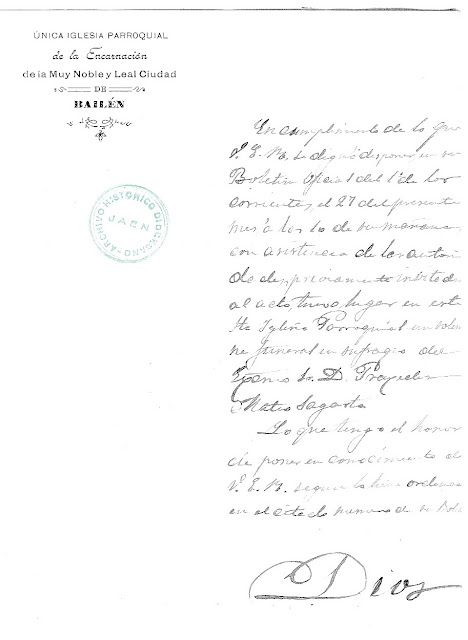 ÚNICA IGLESIA PARROQUIAL
de la Encarnación
de la Muy Noble y Leal Ciudad
DE
BAILÉN
ARCHIVO HISTORICO DIOCESANO
JAEN
En cumplimiento de lo que
V. E. R. se dignó disponer en su
Boletin Oficial del 1º de los
corrientes, el 27 del presente
mes á las 10 de su mañana
con asistencia de las autori
dades previamente invitada
al acto, tuvo lugar en esta
Sta Iglesia Parroquial un solem
ne funeral en sufragio del
Excmo Sr. D. Praxedes
Mateo Sagasta
Lo que tengo el honor
de poner en conocimiento de
V. E. R. segun lo tiene ordenado
en el citado numero de su Bole
Dios